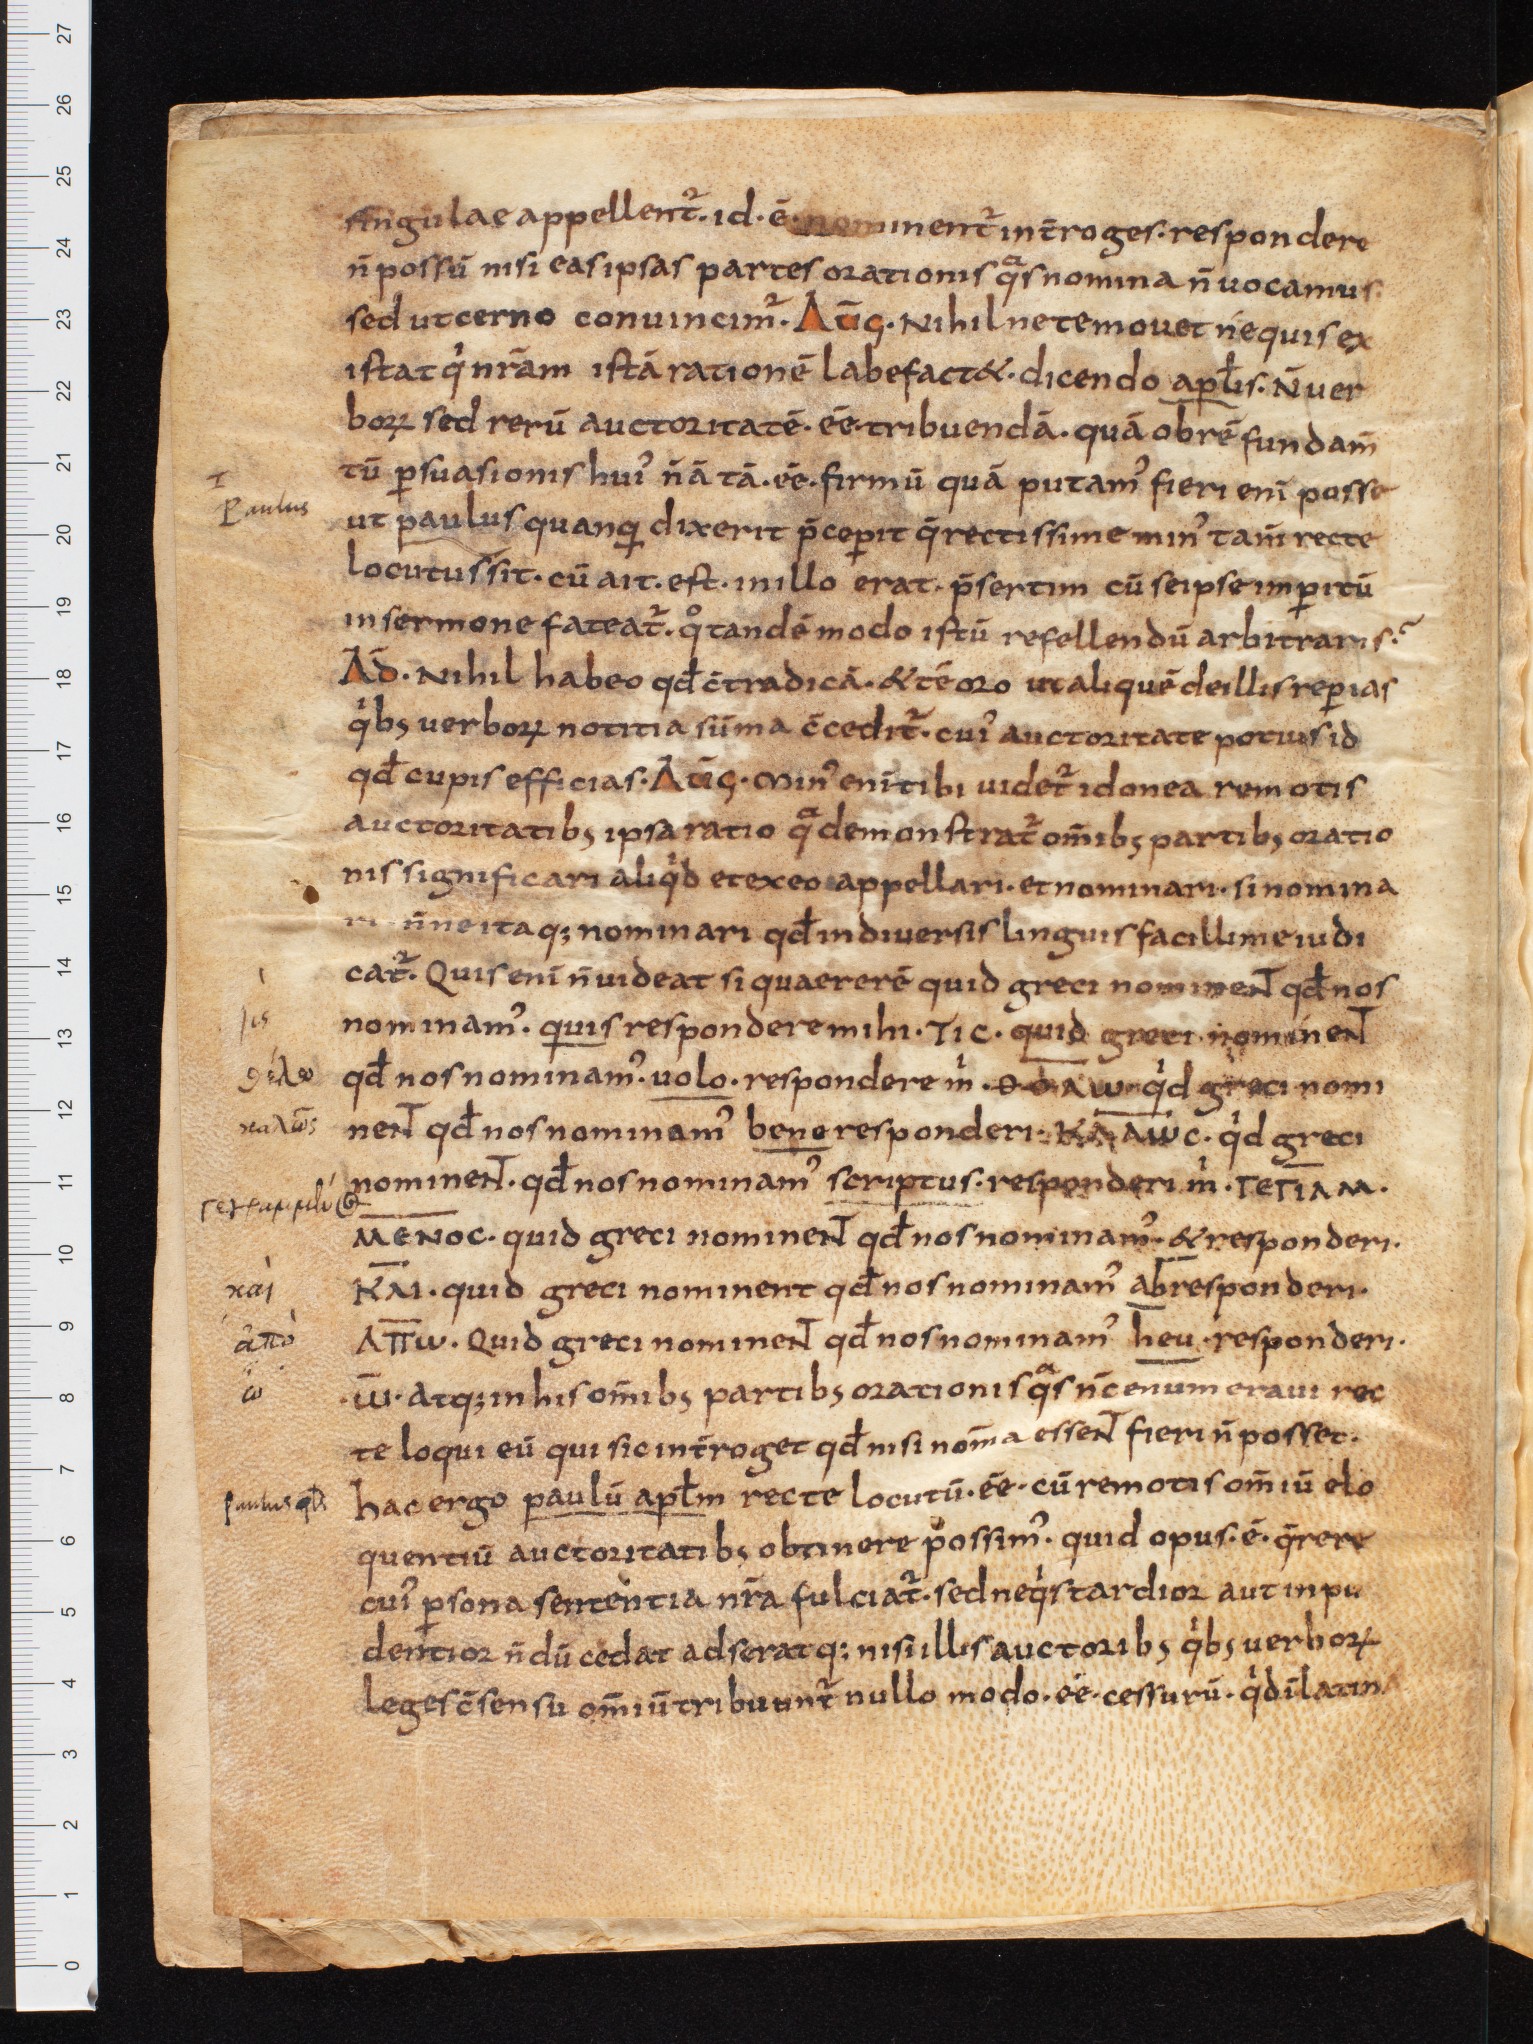 singulae appellent᷑. id. ē. nominent᷑ int̄roges. respondere
n̄ possū nisi eas ipsas partes orationis qᵃs nomina n̄ uocamus.
sed ut cerno conuincim᷑. Aūg. Nihil ne te mouet ne quis ex
istat qⁱ nr̄am istā rationē labefact&. dicendo apl̄is. N̄ uer
boꝝ sed rerū auctoritatē. eē. tribuendā. quā obrē fundam̄
I
tū ꝑsuasionis huiꝰ n̄ā tā. eē. firmū quā putamꝰ fieri enī posse
Paulus
ut paulus quanq̄ dixerit p̄ceꝑit q̄ rectissime minꝰ tam̄ recte
locutus sit. cū ait. est. in illo erat. p̄sertim cū se ipse imꝑitū
in sermone fateat᷑. qͦ tandē modo istū refellendū arbitraris.
Ad̄. Nihil habeo qd̄ c̄tradicā. & tē oro ut aliquē de illis reꝑias
qⁱbꝫ uerboꝝ notitia sūma c̄cedit᷑. cuiꝰ auctoritate potius id
qd̄ cupis efficias. Aūg. Minꝰ enī tibi uidet᷑ idonea remotis
auctoritatibꝫ ipsa ratio qᵃ demonstrat᷑ om̄ibꝫ partibꝫ oratio
nis significari aliqⁱd et ex eo appellari. et nominari. si nomina
ri. n̄ne itaqꝫ nominari qd̄ in diuersis linguis facillime iudi
cat᷑. Quis enī n̄ uideat si quaererē quid greci nominent qd̄ nos
nominamꝰ. quis respondere mihi. TIC. quid greci nominent
θέλω
qd̄ nos nominamꝰ. uolo. respondere mⁱ. ΘΟΛω qⁱd greci nomi
καλῶς
nent qd̄ nos nominamꝰ bene responderi. ΚΑΛωC. qⁱd greci
nominent. qd̄ nos nominamꝰ scriptus. responderi mⁱ. ΓΕΓΙΑΜ.
ΜΕΝΟC. quid greci nominent qd̄ nos nominamꝰ. & responderi.
καὶ
ΚΑΙ. quid greci nominent qd̄ nos nominamꝰ ab responderi.
ἀπὸ
ΑΠω. Quid greci nominent qd̄ nos nominamꝰ heu. responderi.
ὠ
.ω̄. atqꝫ in his om̄ibꝫ partibꝫ orationis qᵃs nc̄ enumeraui rec
te loqui eū qui sic int̄roget qd̄ nisi nom̄a essent fieri n̄ posset.
Paulus apl̄s
hac ergo paulū apl̄m recte locutū. eē. cū remotis om̄iū elo
quentiū auctoritatibꝫ obtinere possimꝰ. quid opus. ē. q̄rere
cuiꝰ ꝑsona sententia nr̄a fulciat᷑. sed neqⁱs tardior aut inpu
dentior n̄dū cedat adseratq: nisi illis auctoribꝫ qⁱbꝫ uerboꝝ
leges c̄sensu om̄iū tribuunt᷑ nullo modo. eē. cessurū. qⁱd ī latina